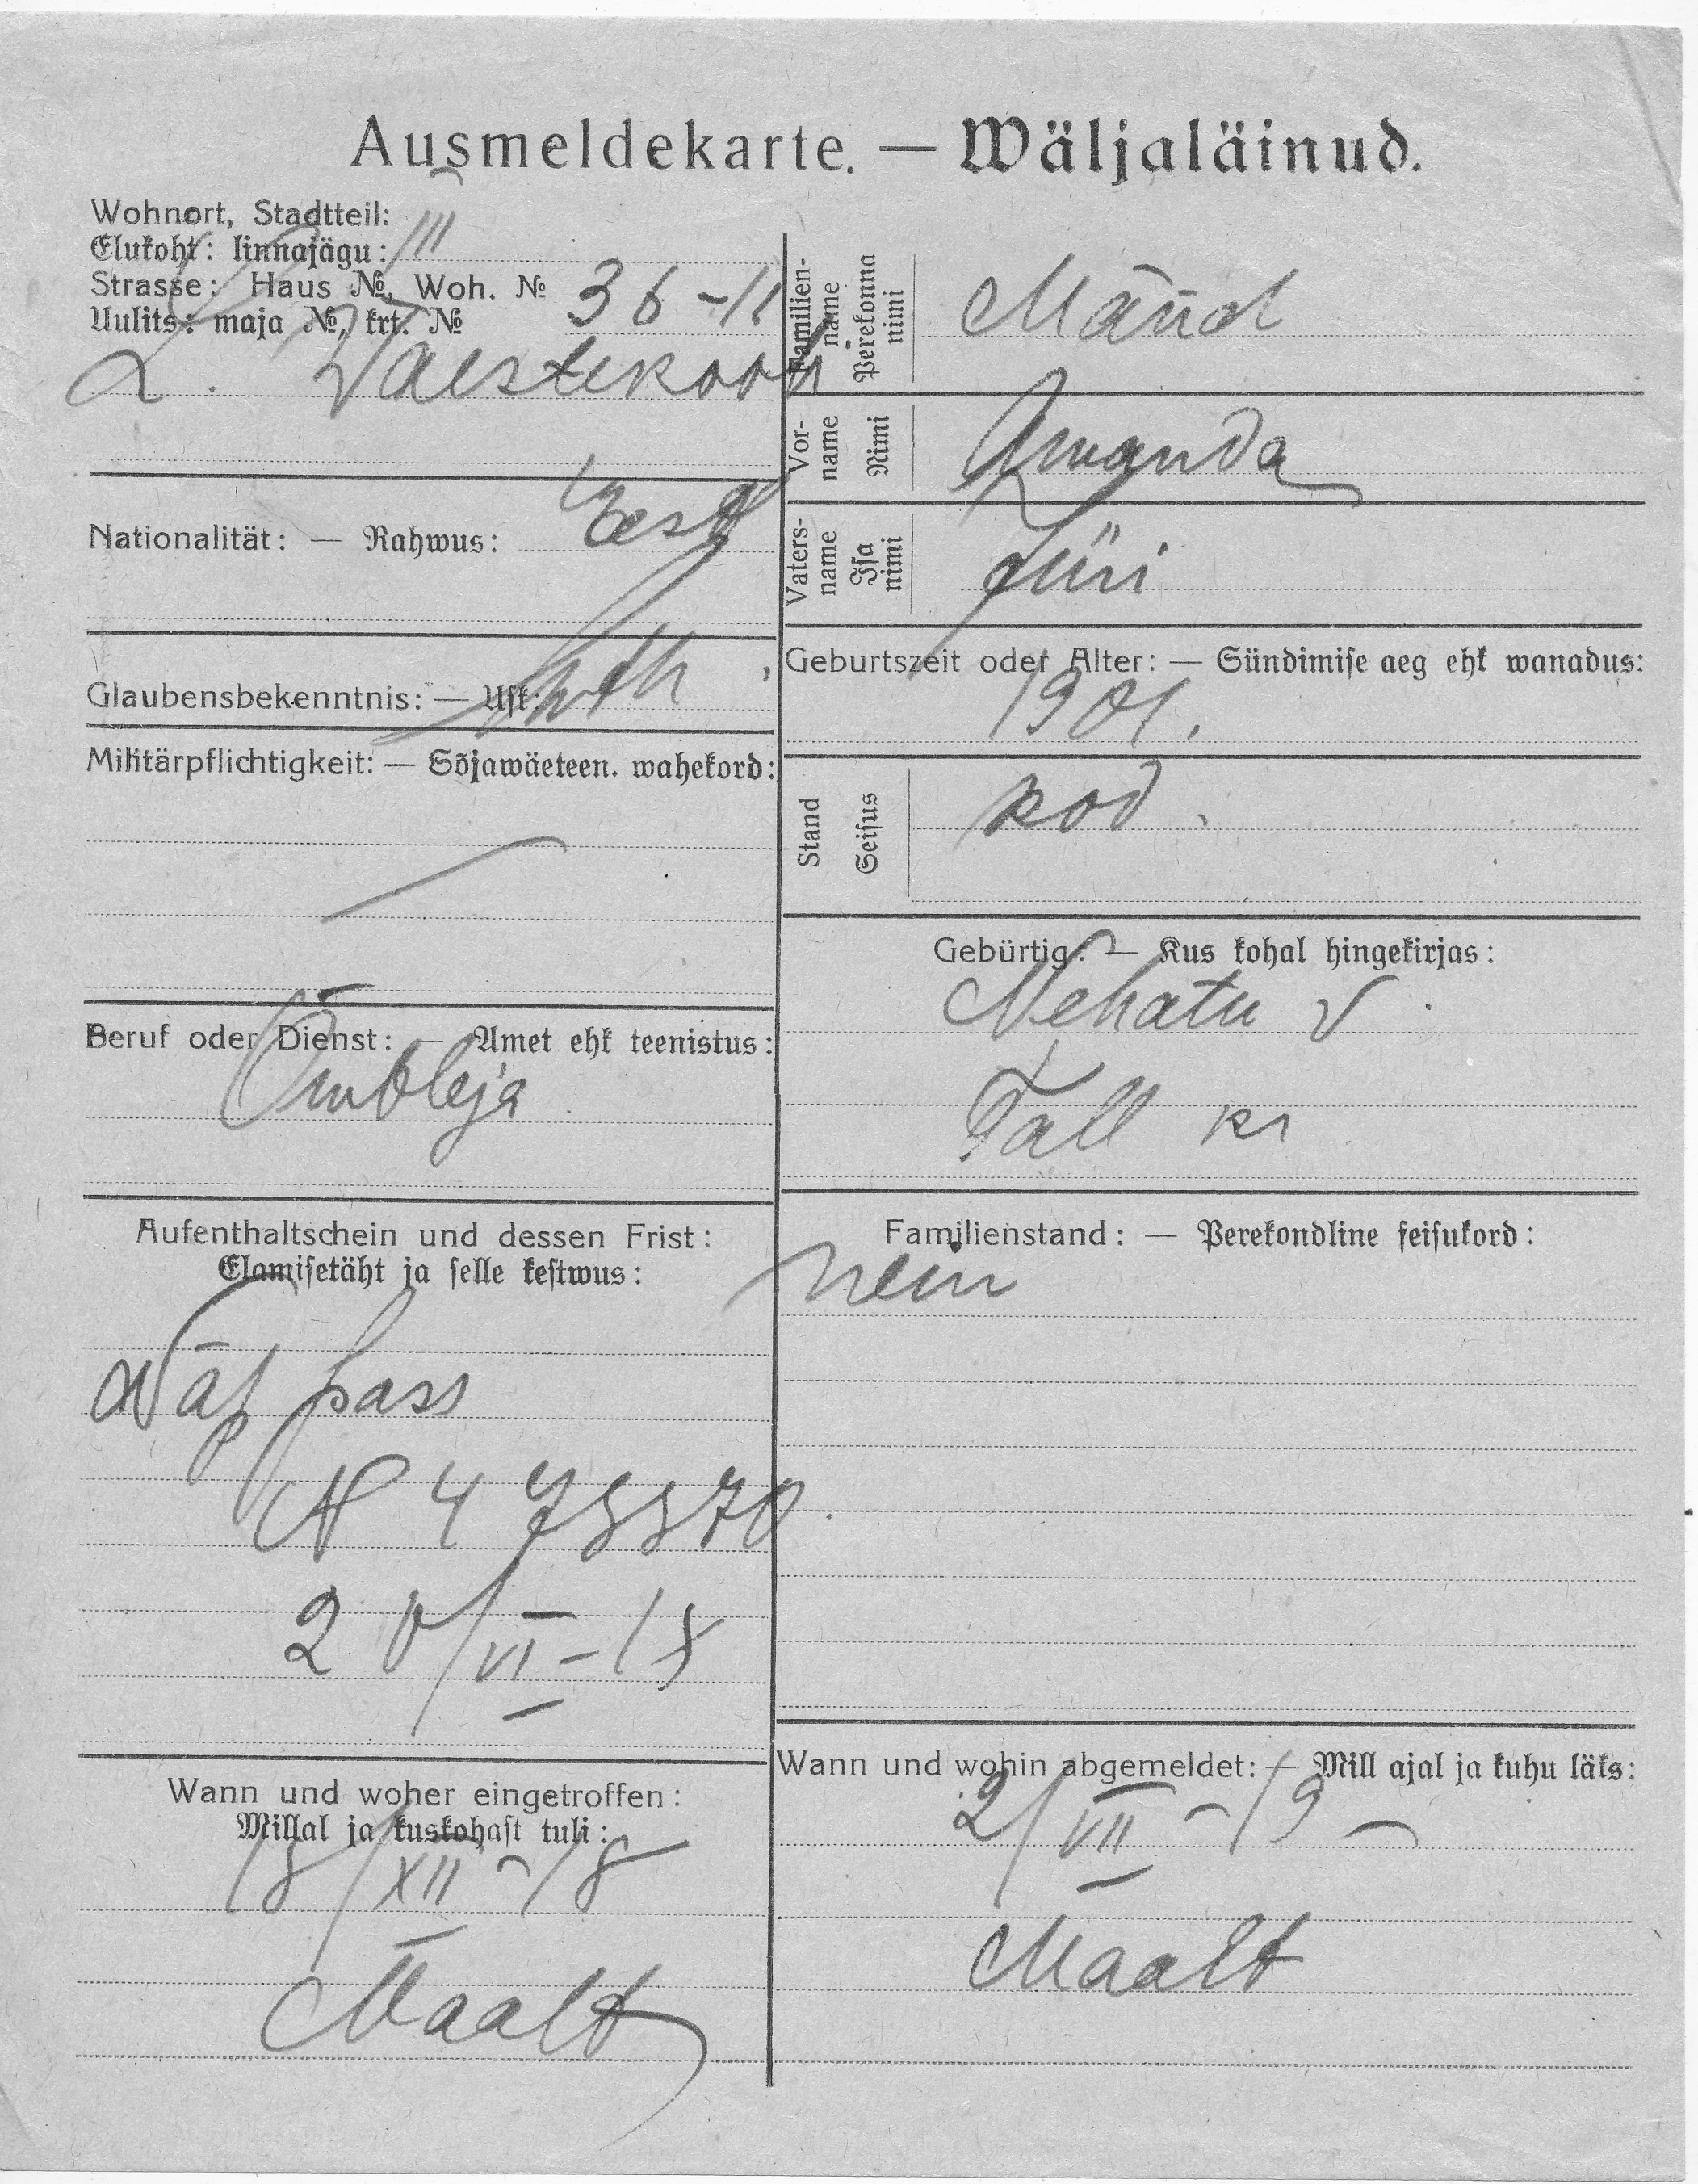 Ausmeldekarte. — Wäljaläinud.
Wohnort, Stadtteil:
Elukoht: linnajägu: III
Strasse: Haus №, Woh. №
Uulits: maja №, krt. № 36-11
Familien-
name
Perekonna
nimi
Mänd
Vor-
name
Nimi
Amanda
Nationalität: — Rahwus: Eest
Vaters-
name
Isa
nimi
Jüri
Glaubensbekenntnis: — Usk: luth
Geburtszeit oder Alter: — Sündimise aeg ehk wanadus:
1901.
Militärpflichtigkeit: — Sõjawäeteen. wahekord:
—
Stand
Seisus
kod.
Gebürtig: — Kus kohal hingekirjas:
Nehatu v.
Tall kr
Beruf oder Dienst: — Amet ehk teenistus:
Õmbleja
Aufenthaltschein und dessen Frist:
Elamisetäht ja selle kestwus:
pass
20/VI-18
Familienstand: — Perekondline seisukord:
nein
Wann und woher eingetroffen:
Millal ja kuskohast tuli:
18/XII-18
Maalt
Wann und wohin abgemeldet: — Mill ajal ja kuhu läks:
2/VII-19-
Maalt